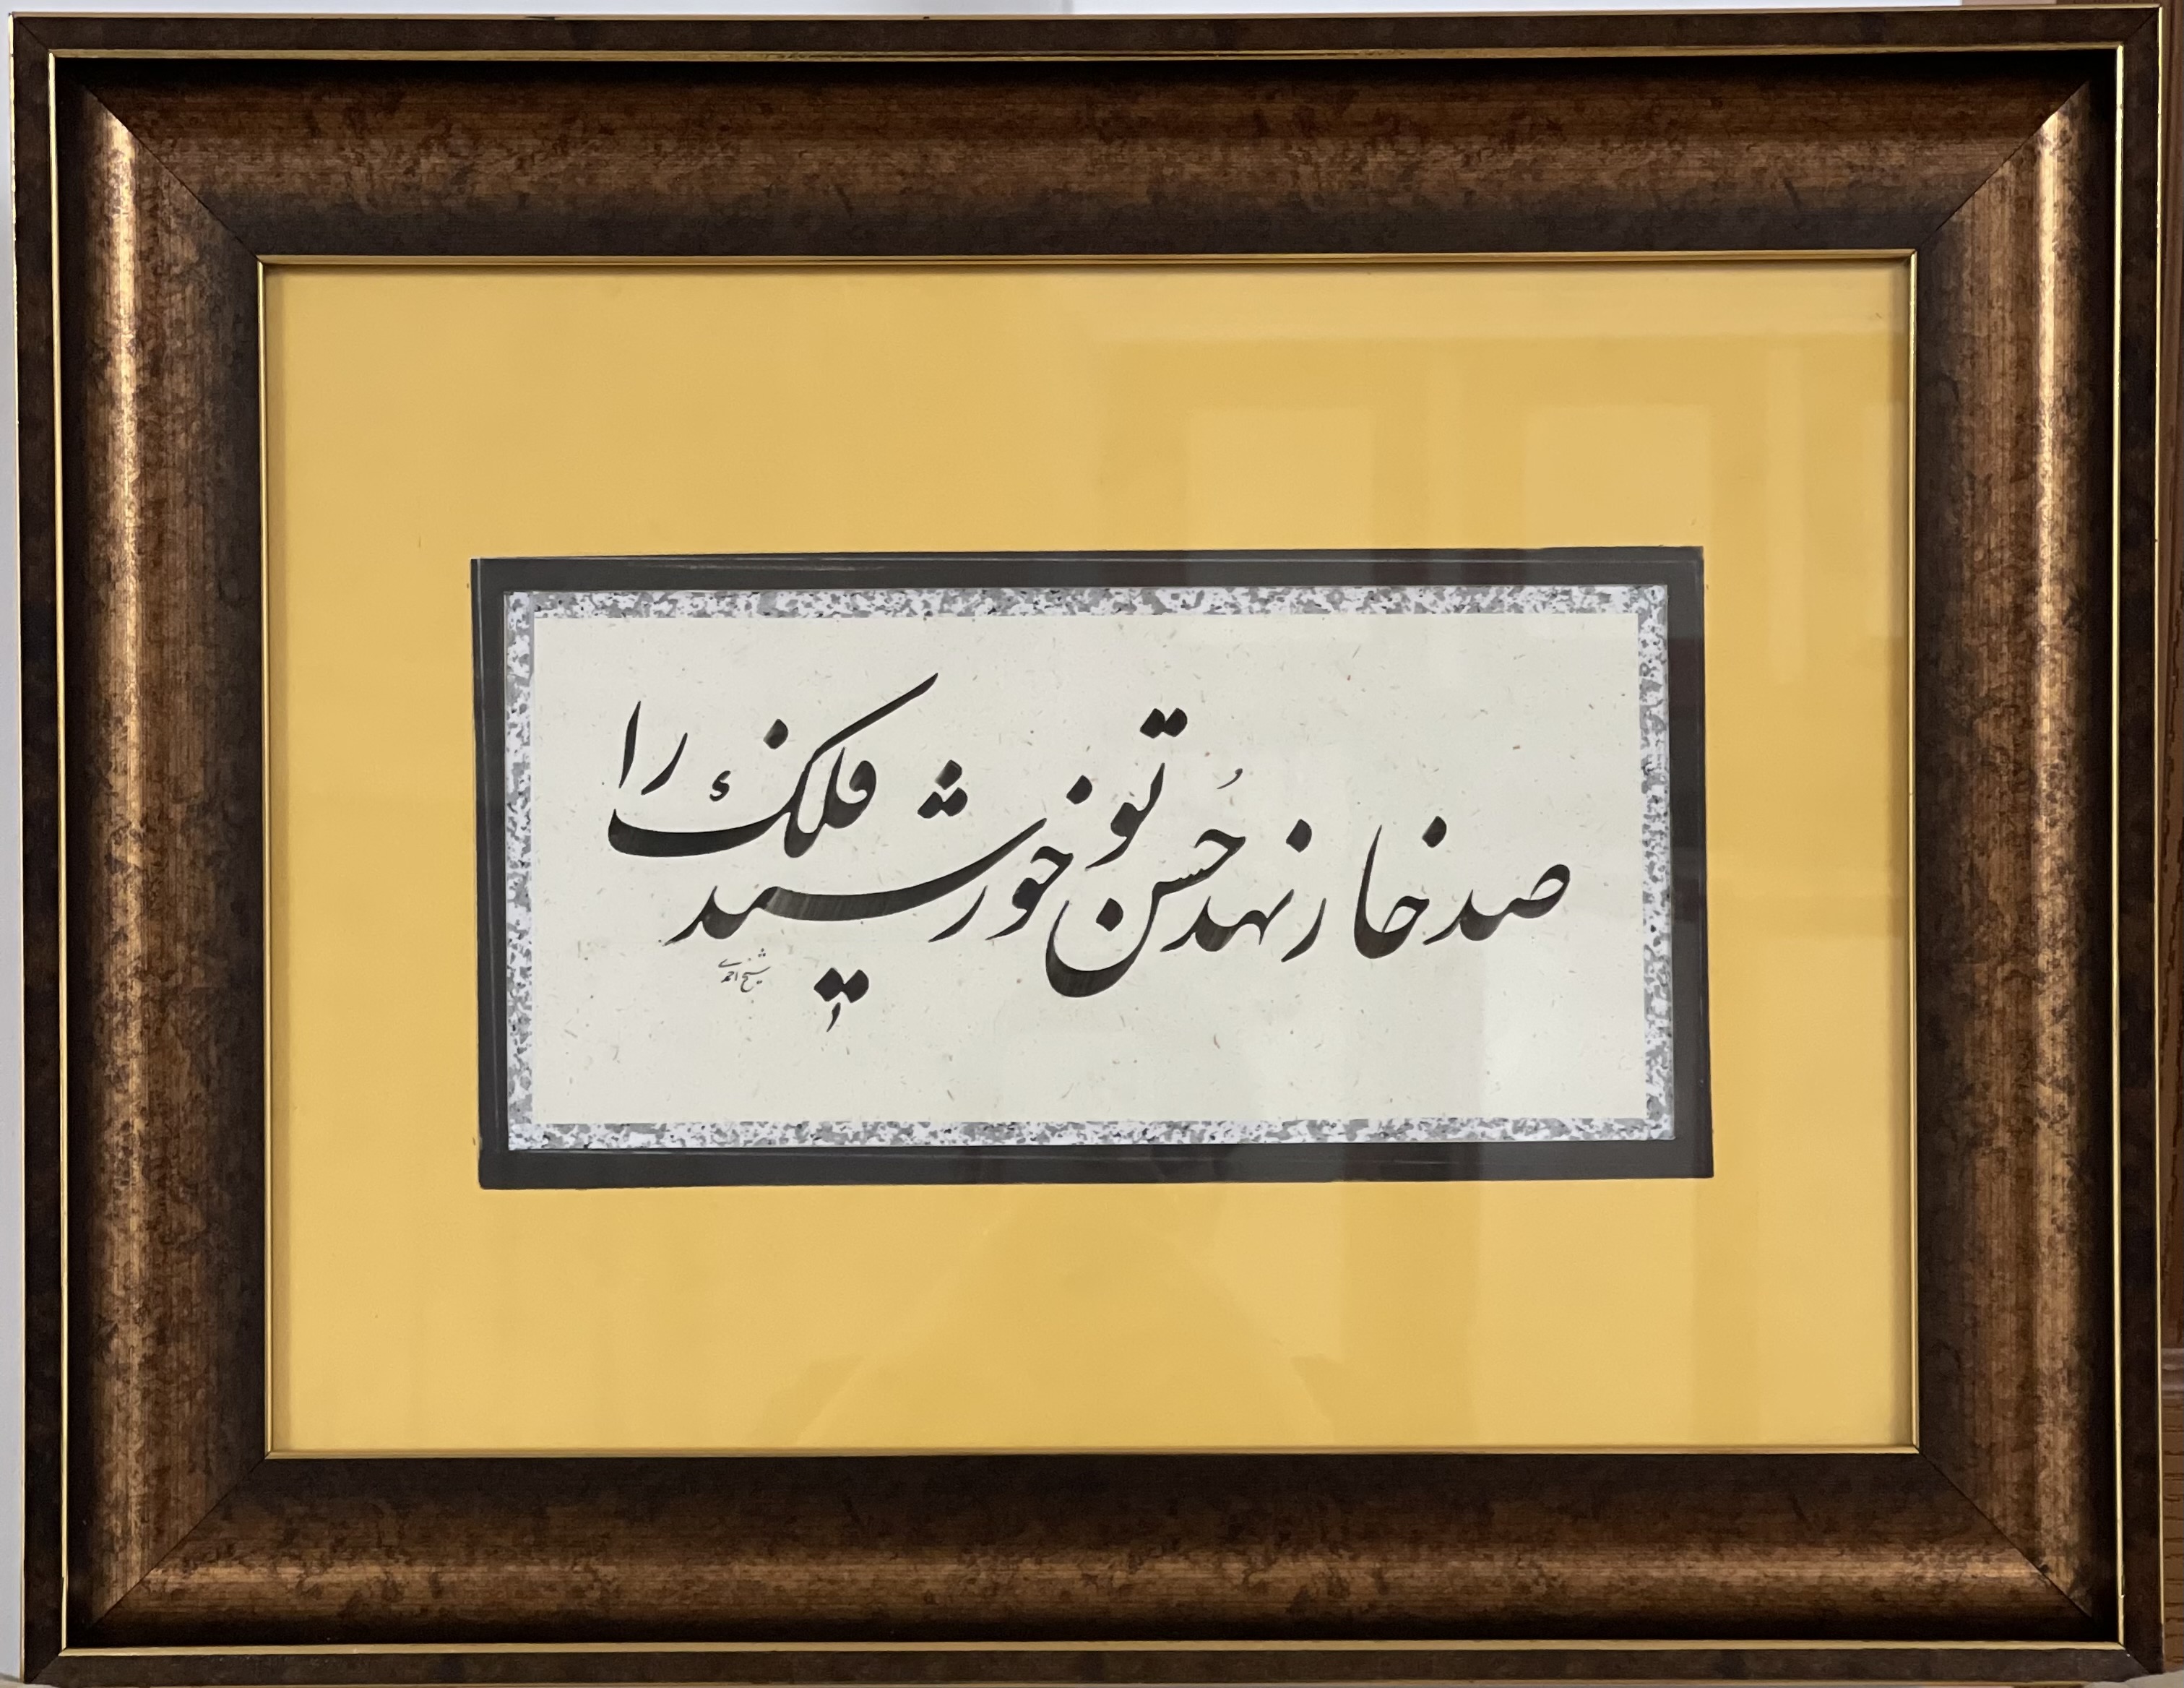 صد خار نهد حُسن تو خورشید فلک را
شیخ احمدی